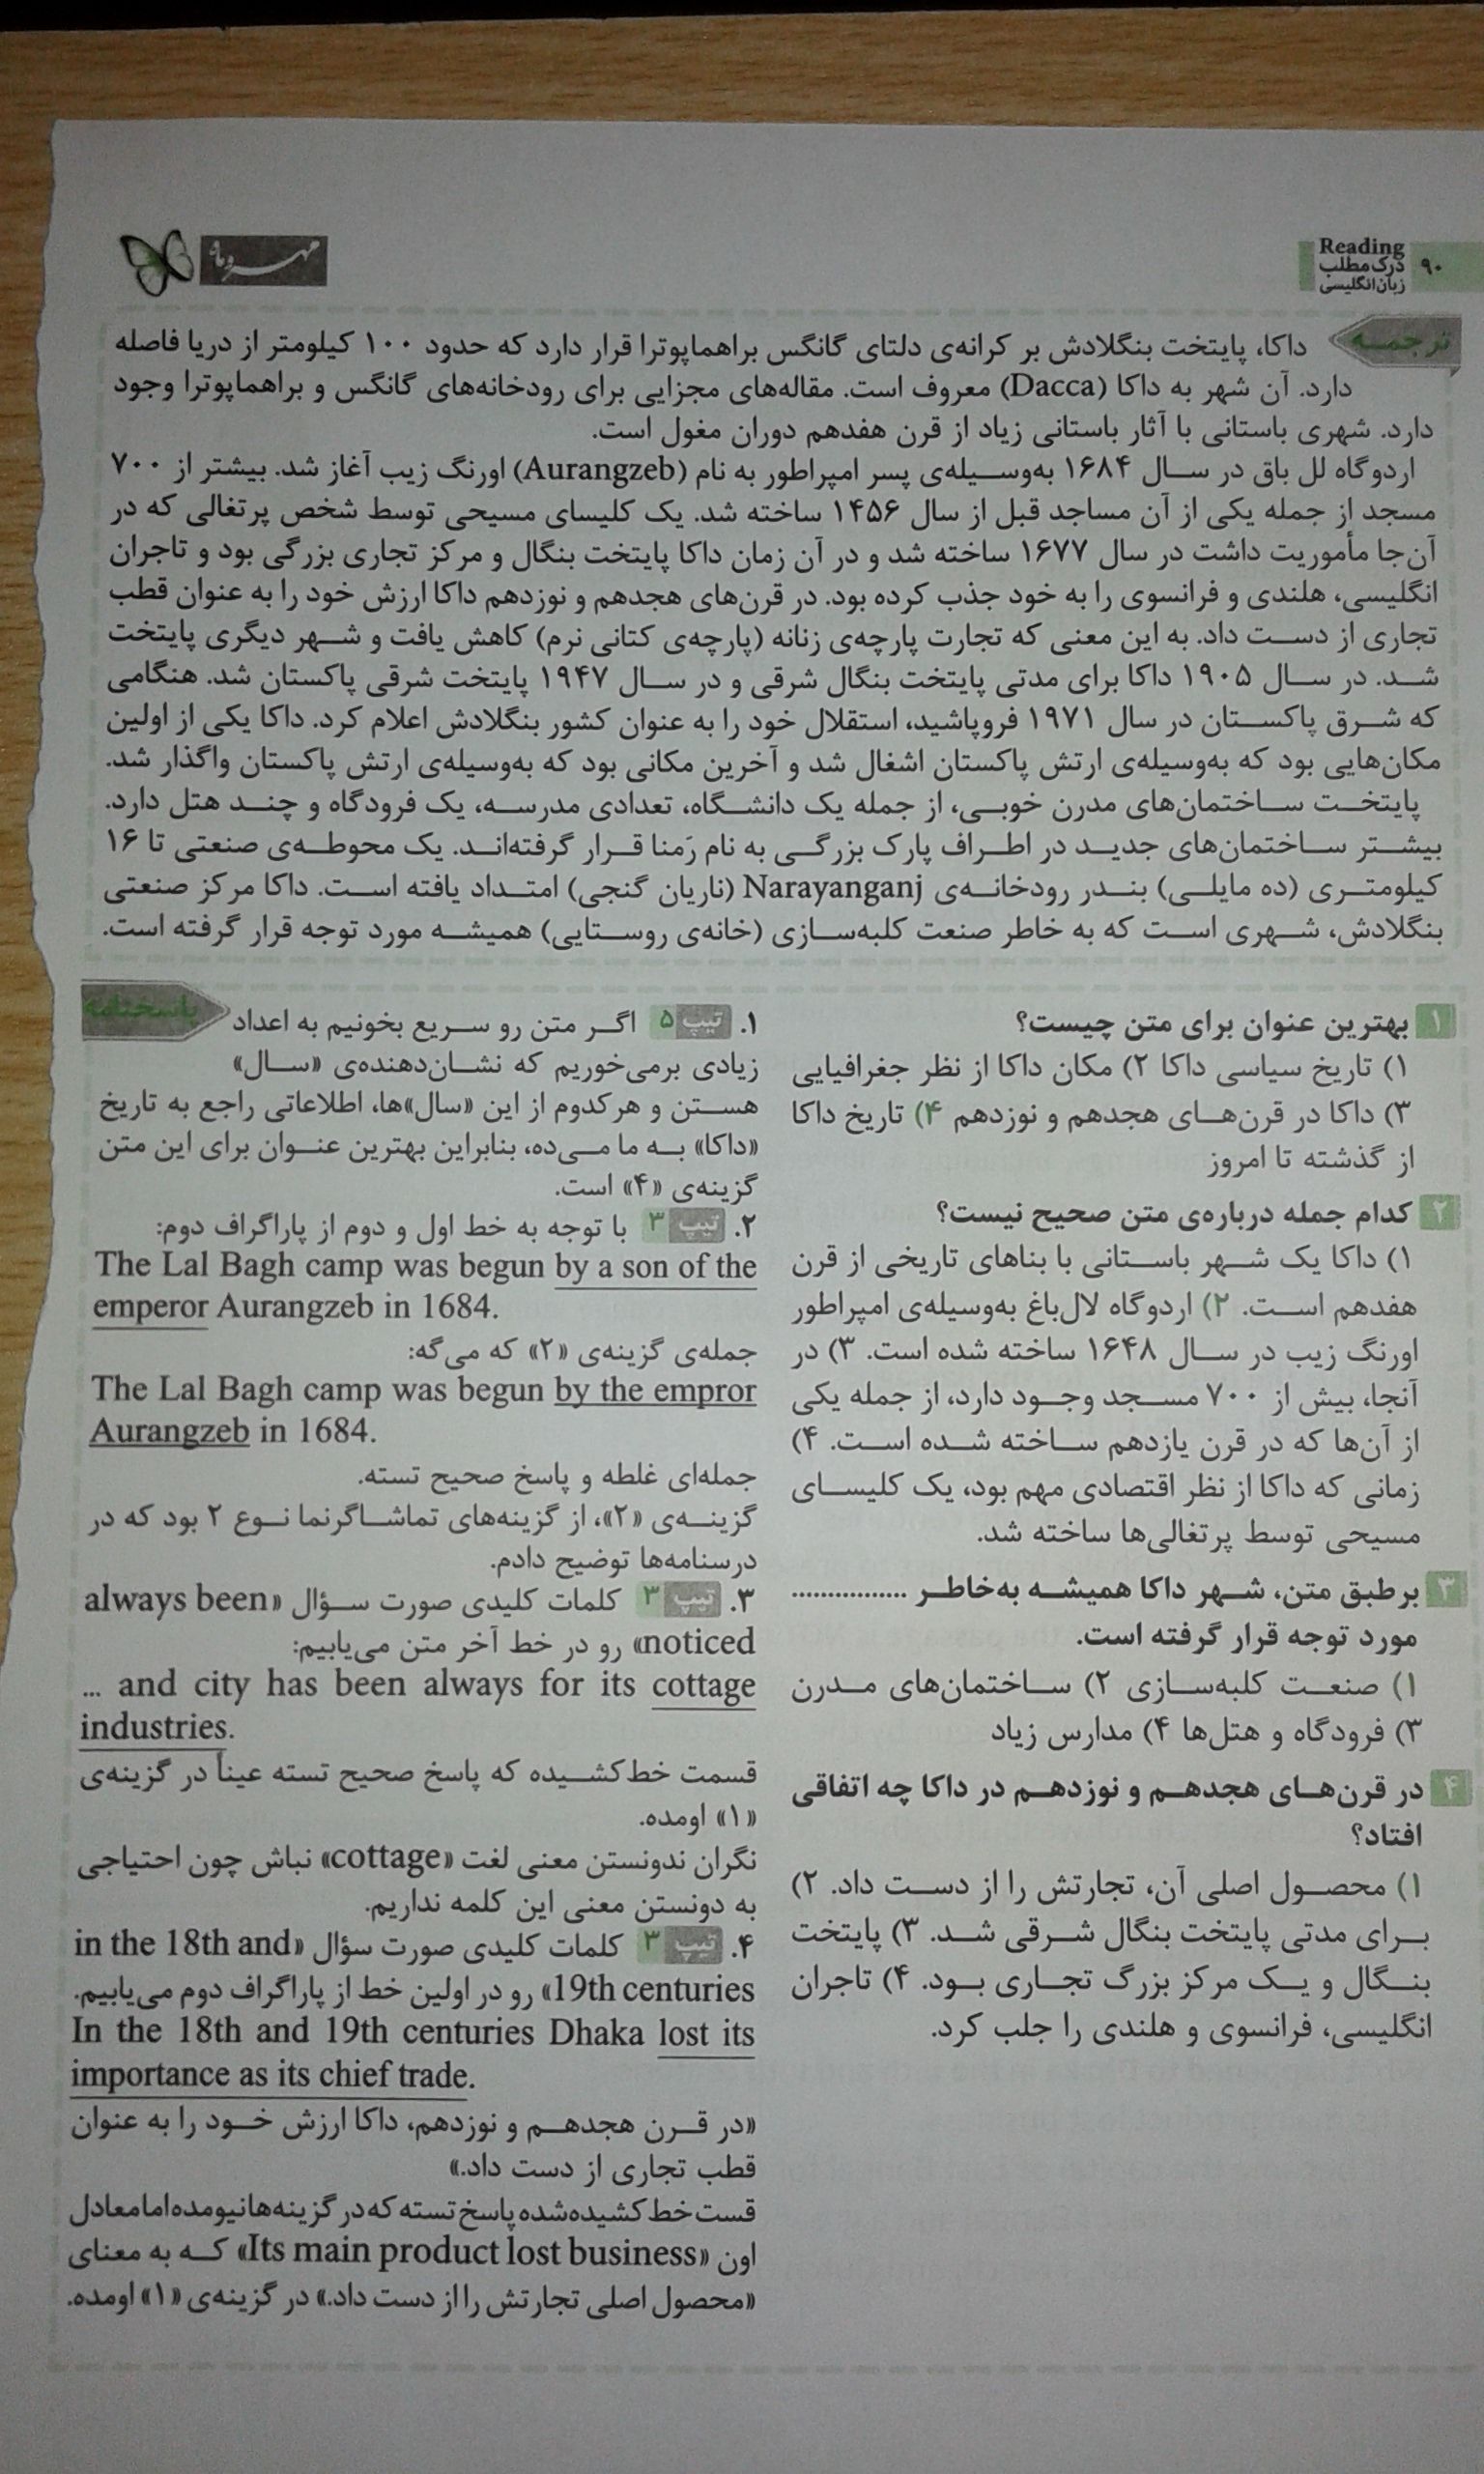 ۹۰
Reading
درک مطلب
زبان انگلیسی
مهروماه
ترجمـه
داکا، پایتخت بنگلادش بر کرانه‌ی دلتای گانگس براهماپوترا قرار دارد که حدود ۱۰۰ کیلومتر از دریا فاصله
دارد. آن شهر به داکا (Dacca) معروف است. مقاله‌های مجزایی برای رودخانه‌های گانگس و براهماپوترا وجود
دارد. شهری باستانی با آثار باستانی زیاد از قرن هفدهم دوران مغول است.
اردوگاه لل باق در سـال ۱۶۸۴ به‌وسـیله‌ی پسر امپراطور به نام (Aurangzeb) اورنگ زیب آغاز شد. بیشتر از ۷۰۰
مسجد از جمله یکی از آن مساجد قبل از سال ۱۴۵۶ ساخته شد. یک کلیسای مسیحی توسط شخص پرتغالی که در
آن‌جا مأموریت داشت در سال ۱۶۷۷ ساخته شد و در آن زمان داکا پایتخت بنگال و مرکز تجاری بزرگی بود و تاجران
انگلیسی، هلندی و فرانسوی را به خود جذب کرده بود. در قرن‌های هجدهم و نوزدهم داکا ارزش خود را به عنوان قطب
تجاری از دسـت داد. به این معنی که تجارت پارچه‌ی زنانه (پارچه‌ی کتانی نرم) کاهش یافت و شـهر دیگری پایتخت
شـد. در سـال ۱۹۰۵ داکا برای مدتی پایتخت بنگال شرقی و در سـال ۱۹۴۷ پایتخت شرقی پاکستان شد. هنگامی
که شـرق پاکسـتان در سال ۱۹۷۱ فروپاشید، استقلال خود را به عنوان کشور بنگلادش اعلام کرد. داکا یکی از اولین
مکان‌هایی بود که به‌وسیله‌ی ارتش پاکستان اشغال شد و آخرین مکانی بود که به‌وسیله‌ی ارتش پاکستان واگذار شد.
پایتخـت سـاختمان‌های مدرن خوبـی، از جمله یک دانشـگاه، تعدادی مدرسـه، یک فرودگاه و چنـد هتل دارد.
بیشـتر سـاختمان‌های جدیـد در اطـراف پارک بزرگـی به نام رَمنا قـرار گرفته‌انـد. یک محوطـه‌ی صنعتی تا ۱۶
کیلومتـری (ده مایلـی) بنـدر رودخانـه‌ی Narayanganj (ناریان گنجی) امتـداد یافته اسـت. داکا مرکز صنعتی
بنگلادش، شـهری اسـت که به خاطر صنعت کلبه‌سـازی (خانه‌ی روسـتایی) همیشـه مورد توجه قرار گرفته است.
۱ بهترین عنوان برای متن چیست؟
۱) تاریخ سیاسی داکا ۲) مکان داکا از نظر جغرافیایی
۳) داکا در قرن‌هـای هجدهم و نوزدهم ۴) تاریخ داکا
از گذشته تا امروز
۲ کدام جمله درباره‌ی متن صحیح نیست؟
۱) داکا یک شـهر باسـتانی با بناهای تاریخی از قرن
هفدهم اسـت. ۲) اردوگاه لال‌باغ به‌وسیله‌ی امپراطور
اورنگ زیب در سـال ۱۶۴۸ ساخته شده است. ۳) در
آنجا، بیش از ۷۰۰ مسـجد وجـود دارد، از جمله یکی
از آن‌ها که در قرن یازدهم سـاخته شـده اسـت. ۴)
زمانی که داکا از نظر اقتصادی مهم بود، یک کلیسـای
مسیحی توسط پرتغالی‌ها ساخته شد.
۳ برطبق متن، شـهر داکا همیشـه به‌خاطـر ................
مورد توجه قرار گرفته است.
۱) صنعـت کلبه‌سـازی ۲) سـاختمان‌های مـدرن
۳) فرودگاه و هتل‌ها ۴) مدارس زیاد
۴ در قرن‌هـای هجدهـم و نوزدهـم در داکا چه اتفاقی
افتاد؟
۱) محصـول اصلی آن، تجارتش را از دسـت داد. ۲)
بـرای مدتی پایتخت بنگال شـرقی شـد. ۳) پایتخت
بنـگال و یـک مرکز بزرگ تجـاری بـود. ۴) تاجران
انگلیسی، فرانسوی و هلندی را جلب کرد.
پاسخنامه
۱. تیپ ۵ اگـر متن رو سـریع بخونیم به اعداد
زیادی برمی‌خوریم که نشـان‌دهنده‌ی «سـال»
هسـتن و هرکدوم از این «سال»ها، اطلاعاتی راجع به تاریخ
«داکا» بـه ما مـی‌ده، بنابراین بهترین عنـوان برای این متن
گزینه‌ی «۴» است.
۲. تیپ ۳ با توجه به خط اول و دوم از پاراگراف دوم:
The Lal Bagh camp was begun by a son of the
emperor Aurangzeb in 1684.
جمله‌ی گزینه‌ی «۲» که می‌گه:
The Lal Bagh camp was begun by the empror
Aurangzeb in 1684.
جمله‌ای غلطه و پاسخ صحیح تسته.
گزینـه‌ی «۲»، از گزینه‌های تماشـاگرنما نـوع ۲ بود که در
درسنامه‌ها توضیح دادم.
۳. تیپ ۳ کلمات کلیدی صورت سـؤال «always been
noticed» رو در خط آخر متن می‌یابیم:
... and city has been always for its cottage
industries.
قسمت خط‌کشـیده که پاسخ صحیح تسته عیناً در گزینه‌ی
«۱» اومده.
نگران ندونستن معنی لغت «cottage» نباش چون احتیاجی
به دونستن معنی این کلمه نداریم.
۴. تیپ ۳ کلمات کلیدی صورت سؤال «in the 18th and
19th centuries» رو در اولین خط از پاراگراف دوم می‌یابیم.
In the 18th and 19th centuries Dhaka lost its
importance as its chief trade.
«در قـرن هجدهـم و نوزدهم، داکا ارزش خـود را به عنوان
قطب تجاری از دست داد.»
قست خط کشیده‌شده پاسخ تسته که در گزینه‌ها نیومده اما معادل
اون «Its main product lost business» کـه به معنای
«محصول اصلی تجارتش را از دست داد.» در گزینه‌ی «۱» اومده.